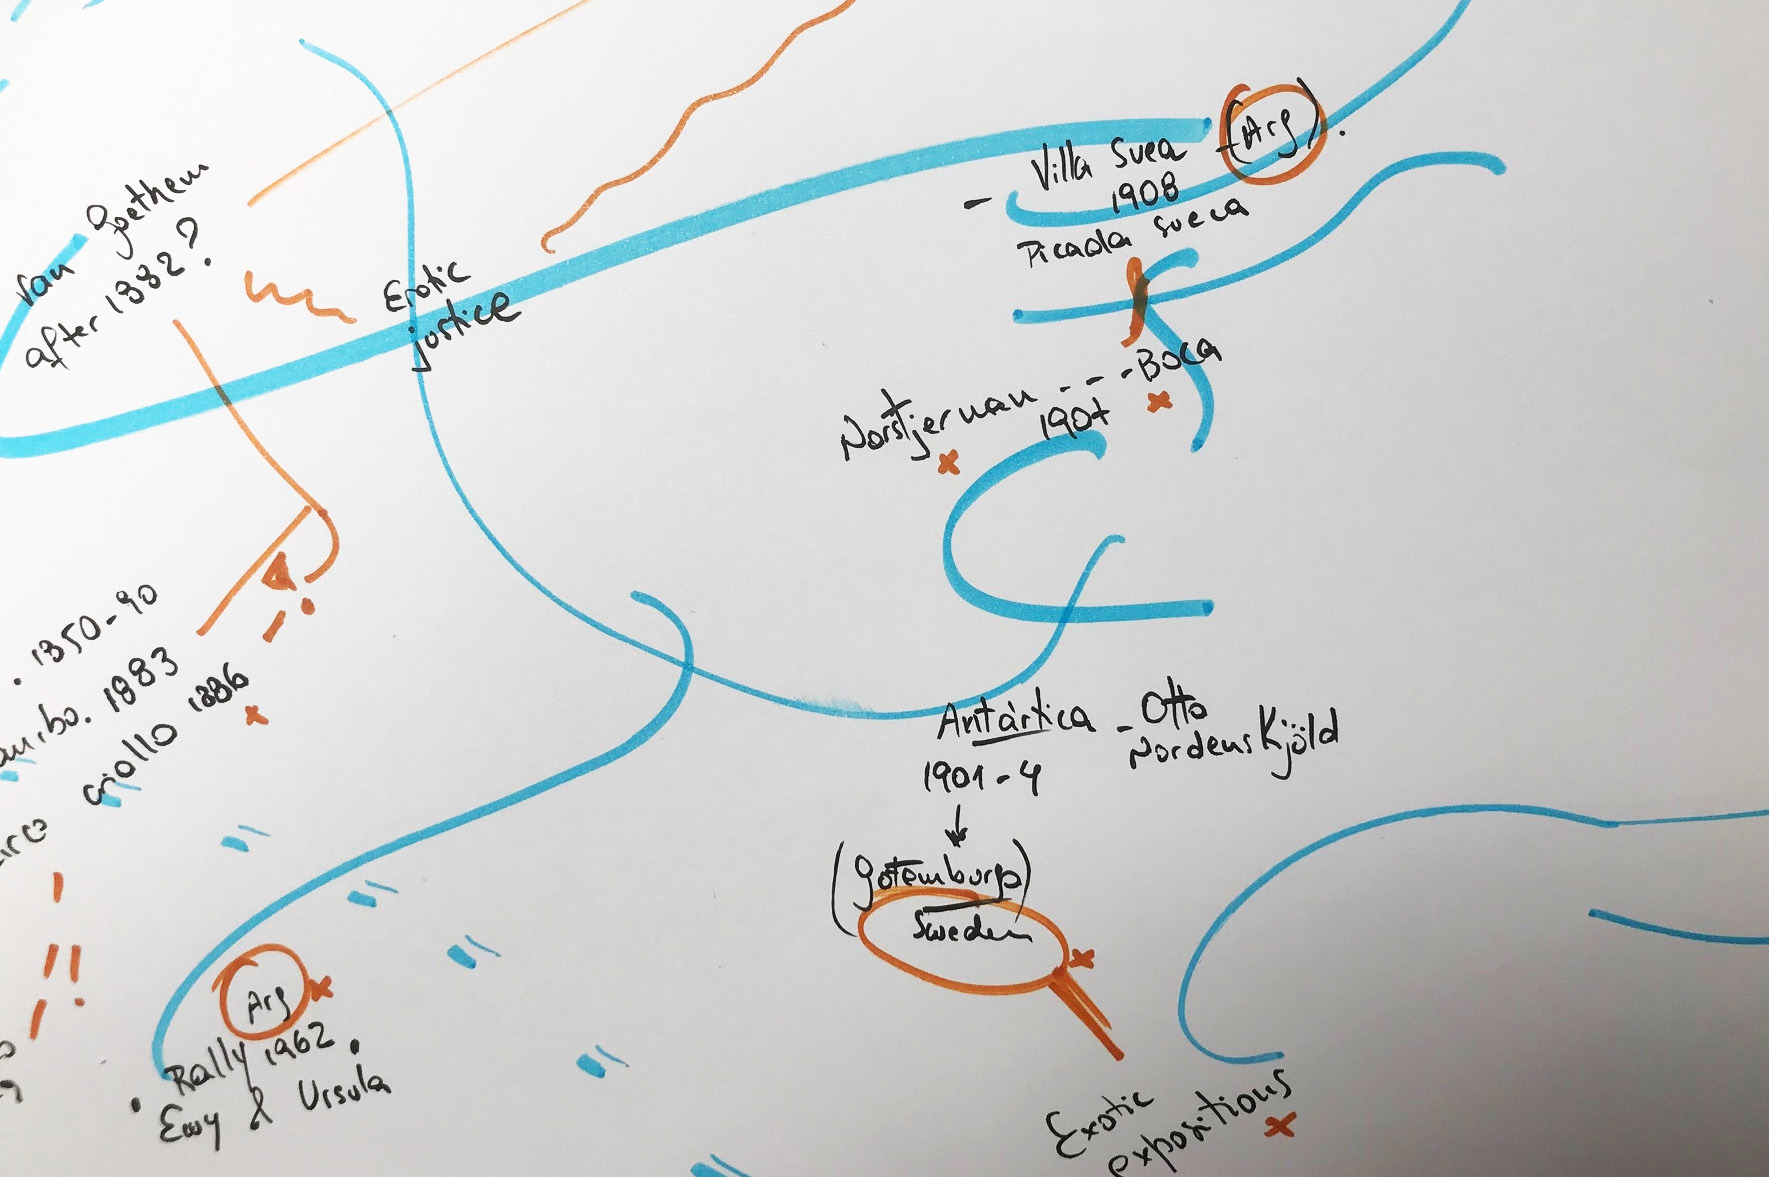 Villa Svea (Arg).
1908
Picada sueca
van Goethem
after 1882?
Erotic
justice
Norstjernan - - - Boca
1904
. 1850-90
1883
criollo 1886
Antártica - Otto
Nordenskjöld
1901-4
(Gotemburgo)
Sweden
Arg
. Rally 1962 .
Ewy & Ursula
Exotic
expositions